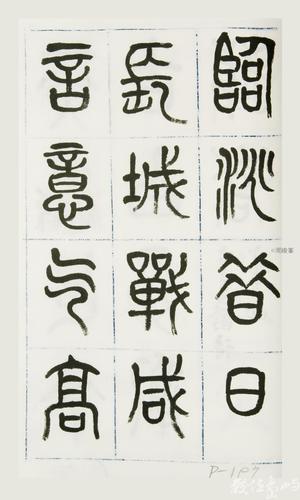 臨洮昔日
長城戰咸
言意气高